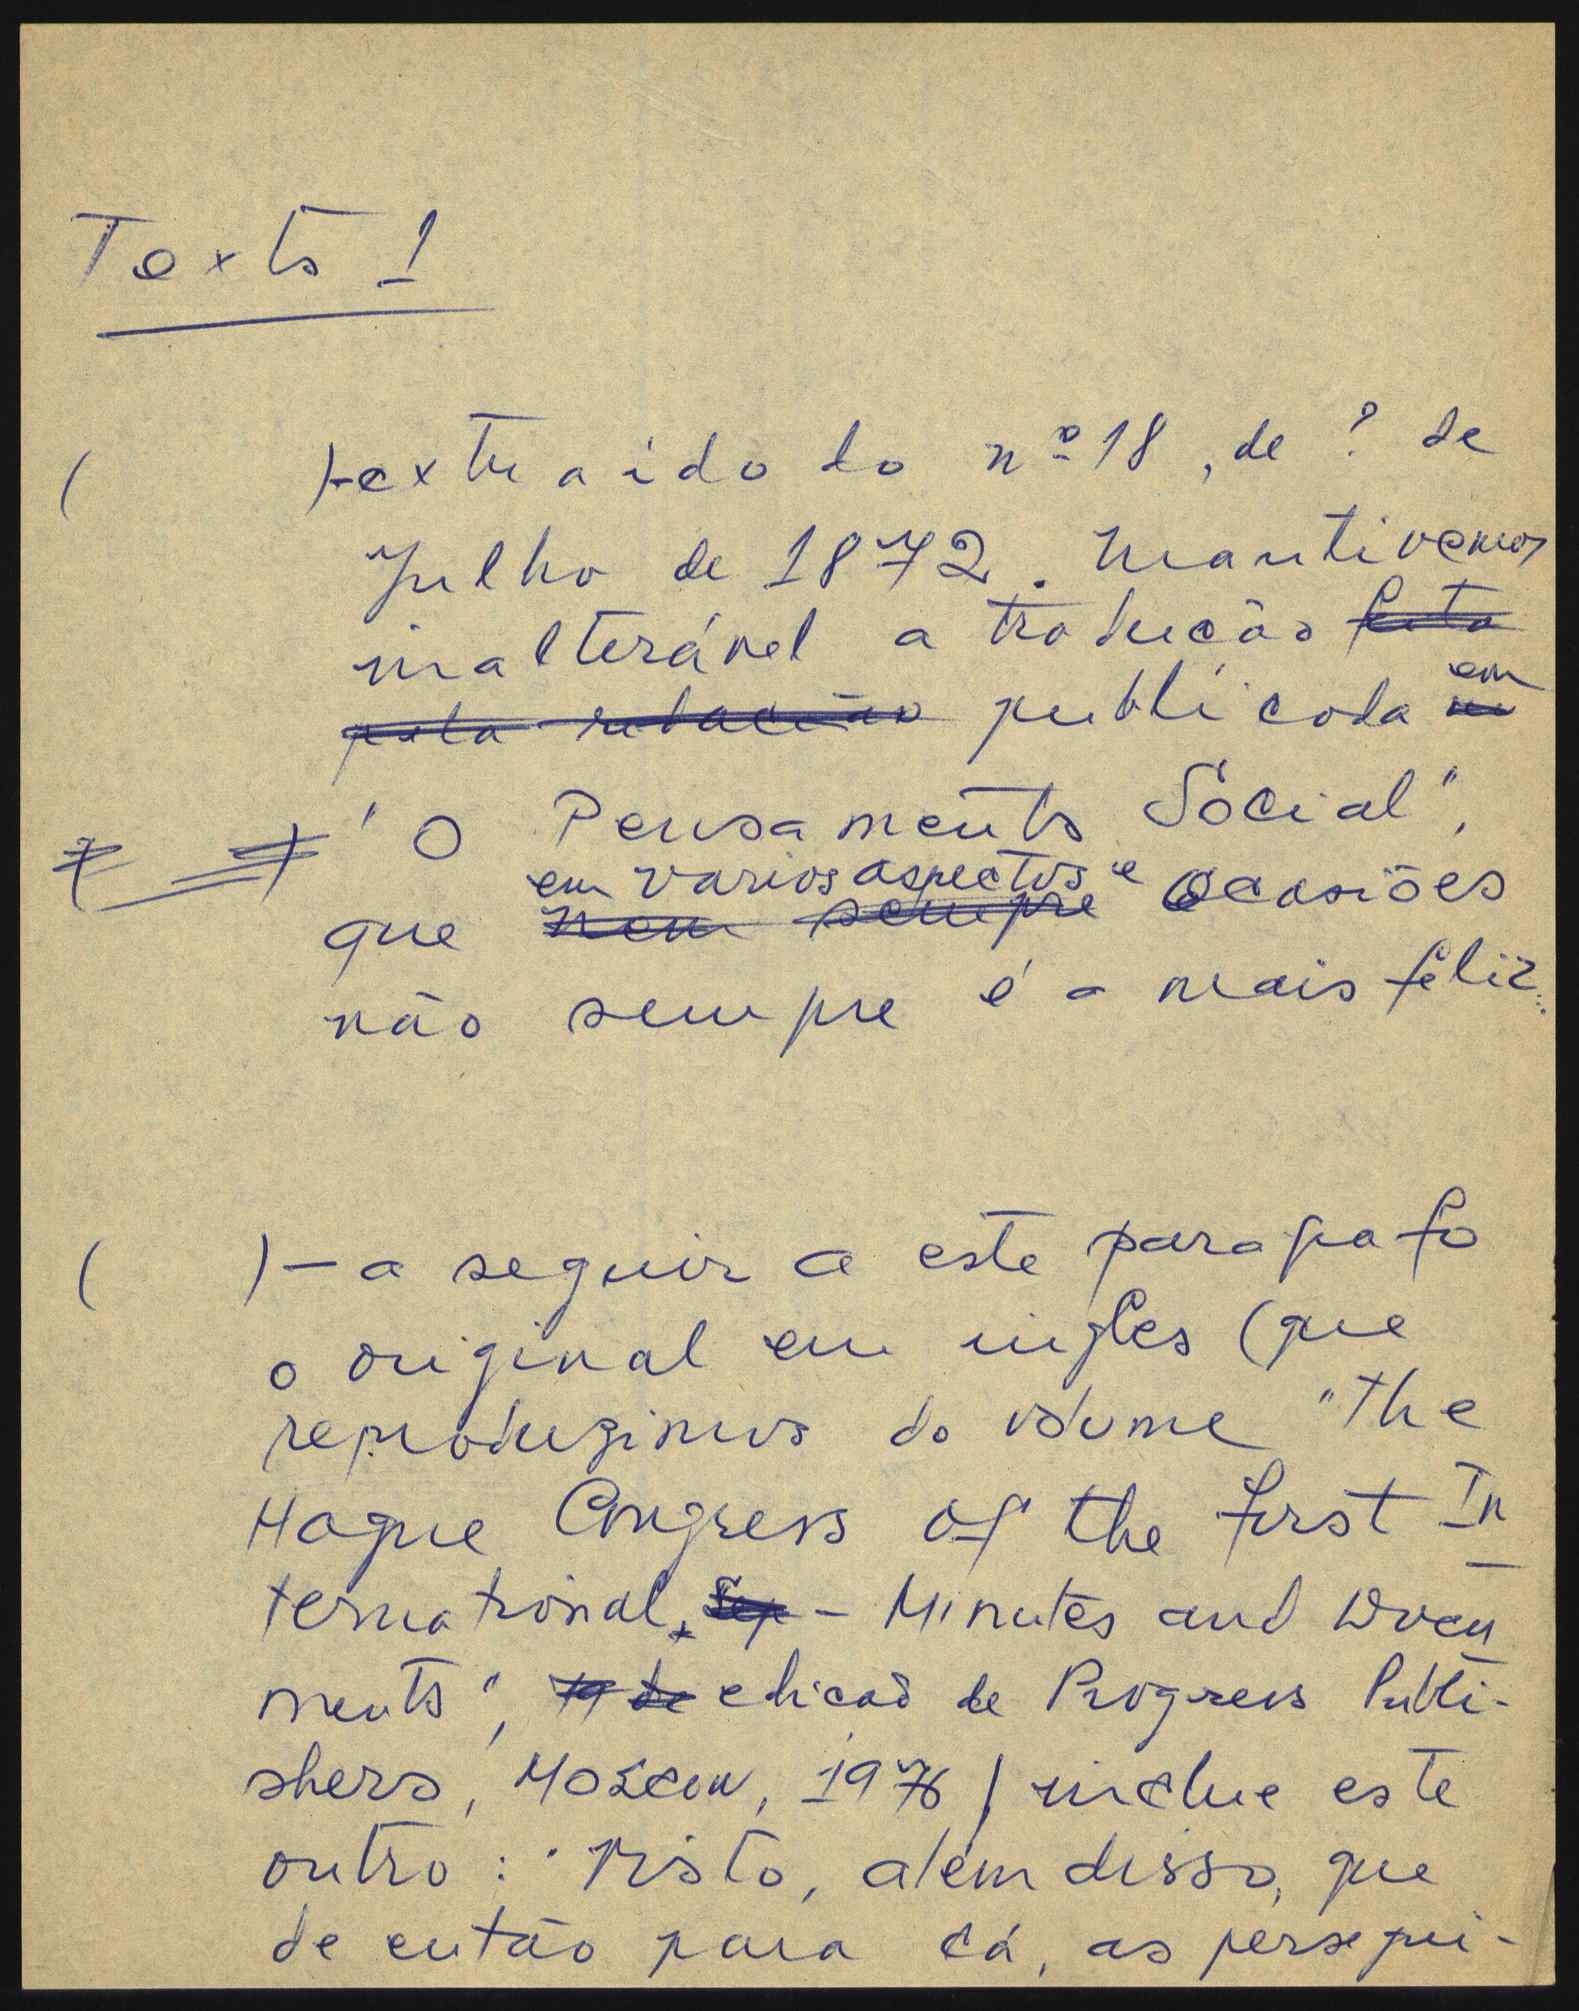 Texto 1
( )-extraido do nº 18, de ? de
Julho de 1872. Mantivemos
inalterável a tradução feita
pela redacção publicada em
"O Pensamento Social",
em varios aspectos e
que nem sempre ocasiões
não sempre é a mais feliz.
( )- a seguir a este paragrafo
o original em ingles (que
reproduzimos do volume "The
Hague Congress of the First In
ternational, - Minutes and Docu
ments", edicaõ de Progress Publi-
shers, Moscow, 1976) inclue este
outro: "Visto, além disso, que
de então para cá, as persegui-